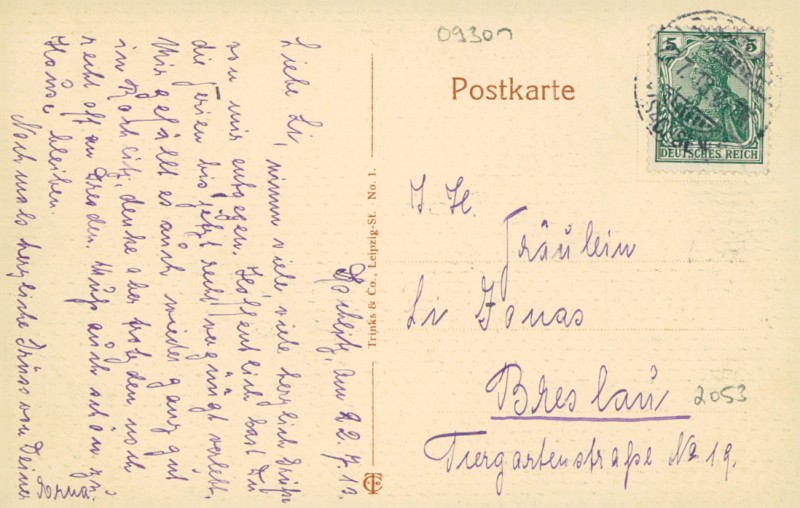 09301
Postkarte
5 5
DEUTSCHES REICH
Trinks & Co., Leipzig-St. No. 1.
Rochlitz, am 22. 7. 13.
Liebe Li, nimm viele viele herzlich Grüße
von mir entgegen. Hoffentlich hast Du
die Ferien bis jetzt recht vergnügt verlebt.
Mir gefällt es auch wieder ganz gut
in Rochlitz, denke aber trotzdem noch
recht oft an Dresden. Muß auch schön zu
Hause bleiben.
Nochmals herzliche Grüße von Deiner
J. H.
Fräulein
Li Jonas
Breslau
2053
Tiergartenstraße No 19.